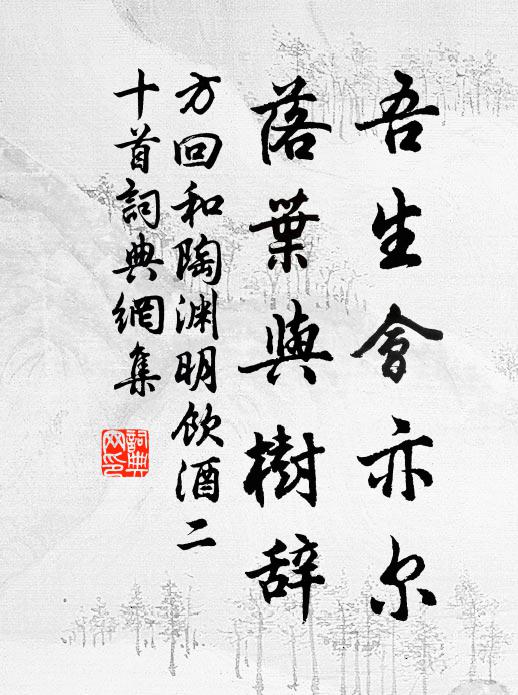 吾生會亦尔
落葉與樹辞
方回和陶渊明飲酒二
十首詞典網集
詞典网印